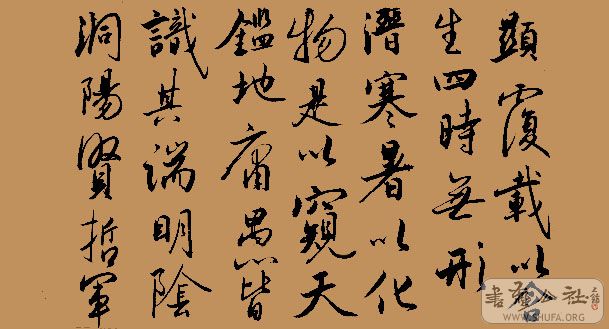 顯覆載以含
生四時無形
潛寒暑以化
物是以窺天
鑑地庸愚皆
識其端明陰
洞陽賢哲罕
公社
SHUFA.ORG